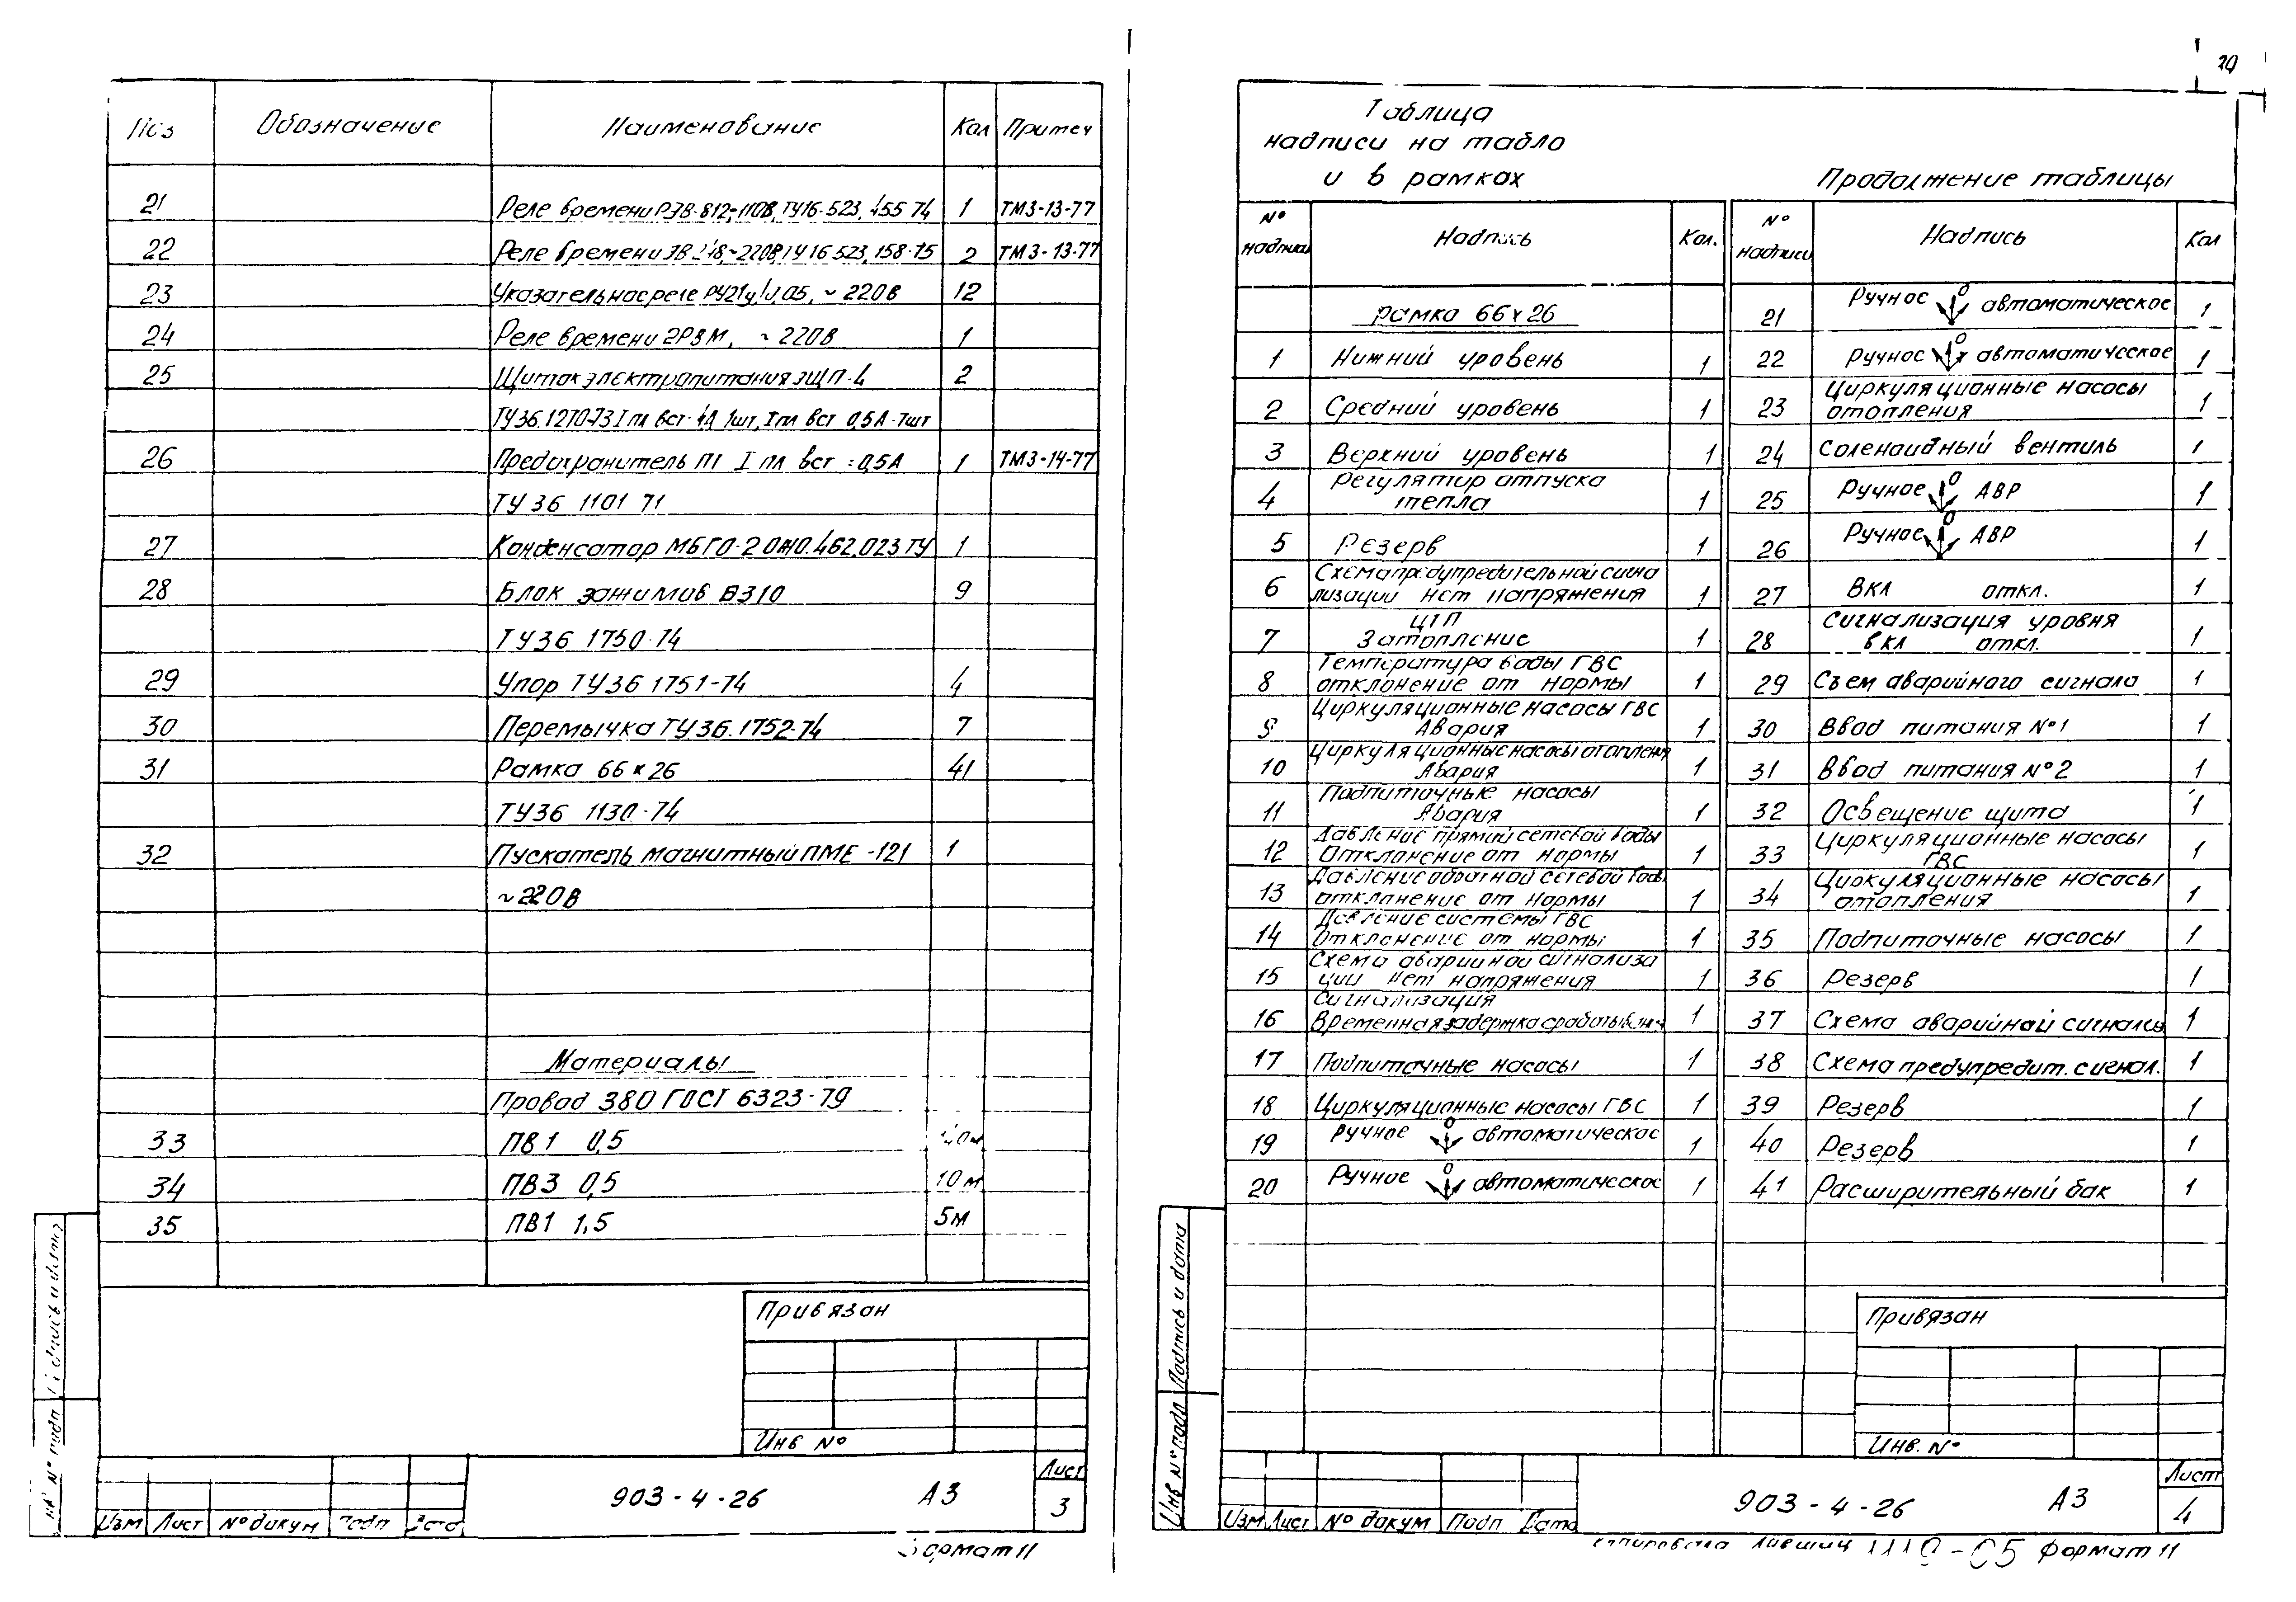 Поз Обозначение Наименование Кол Примеч
21 Реле времени РЭВ-812,~110В, ТУ16.523,455 74 1 ТМ3-13-77
22 Реле времени ЭВ 248,~220В, ТУ16 523,158-75 2 ТМ3-13-77
23 0,05, ~ 220В 12
24 Реле времени 2РВМ, ~ 220В 1
25 Щиток электропитания ЭЩП-4 2
ТУ36.1270-73 I пл вст- 4А 1шт, I пл вст 0,5А-7шт
26 Предохранитель ПТ I пл вст =0,5А 1 ТМ3-14-77
ТУ 36 1101 71
27 Конденсатор МБГО-2 ОЖО.462,023 ТУ 1
28 Блок зажимов БЗ10 9
ТУ36 1750-74
29 Упор ТУ36 1751-74 4
30 Перемычка ТУ36.1752-74 7
31 Рамка 66x26 41
ТУ36 1130-74
32 Пускатель магнитный ПМЕ -121 1
~220В
Материалы
Провод 380 ГОСТ 6323-79
33 ПВ1 0,5
34 ПВ3 0,5 10м
35 ПВ1 1,5 5м
Привязан
Инв №
Изм Лист № докум Подп Дата
903-4-26 А3
Лист
3
Формат 11
Таблица
надписи на табло
и в рамках
№ надписи Надпись Кол.
рамка 66x26
1 Нижний уровень 1
2 Средний уровень 1
3 Верхний уровень 1
4 Регулятор отпуска
тепла 1
5 Резерв 1
6 Схема предупредительной сигна
лизации нет напряжения 1
7 ЦТП
Затопление 1
8 Температура воды ГВС
отклонение от нормы 1
9 Циркуляционные насосы ГВС
Авария 1
10 Циркуляционные насосы отоплен
Авария 1
11 Подпиточные насосы
Авария 1
12 Давление прямой сетевой воды
Отклонение от нормы 1
13 Давление обратной сетевой воды
отклонение от нормы 1
14 Давление системы ГВС
Отклонение от нормы 1
15 Схема аварийной сигнализа
ции нет напряжения 1
16 Сигнализация
Временная задержка 1
17 Подпиточные насосы 1
18 Циркуляционные насосы ГВС 1
19 Ручное 0 автоматическое 1
20 Ручное 0 автоматическое 1
Продолжение таблицы
№ надписи Надпись Кол
21 Ручное 0 автоматическое 1
22 Ручное 0 автоматическое 1
23 Циркуляционные насосы
отопления 1
24 Соленоидный вентиль 1
25 Ручное 0 АВР 1
26 Ручное 0 АВР 1
27 Вкл откл. 1
28 Сигнализация уровня
вкл откл. 1
29 Съем аварийного сигнала 1
30 Ввод питания №1 1
31 Ввод питания №2 1
32 Освещение щита 1
33 Циркуляционные насосы
ГВС 1
34 Циркуляционные насосы
отопления 1
35 Подпиточные насосы 1
36 Резерв 1
37 Схема аварийной 1
38 Схема предупредит. сигнал. 1
39 Резерв 1
40 Резерв 1
41 Расширительный бак 1
Привязан
Инв. №
Инв № подл Подпись и дата
Изм Лист № докум Подп Дата
903-4-26 А3
Лист
4
Формат 11